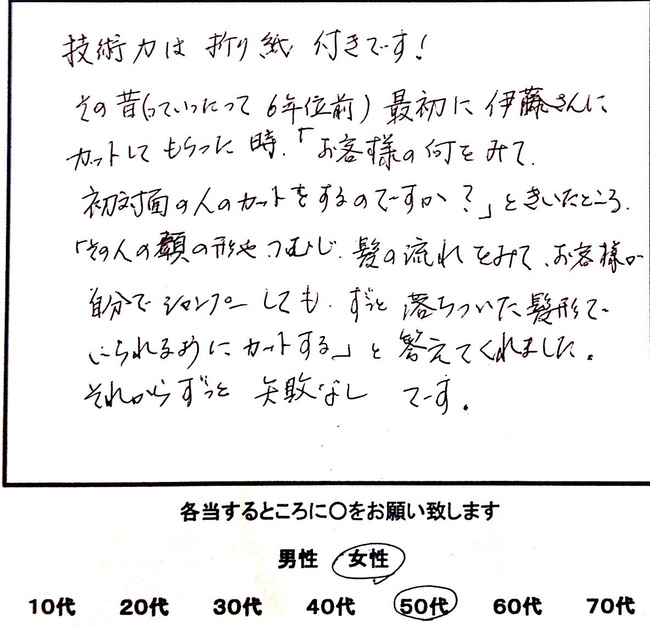 技術力は 折り紙 付きです!
その昔(っていったって 6年位前) 最初に 伊藤さんに
カットして もらった 時.「お客様の何をみて.
初対面の人のカットをするのですか?」ときいたところ.
「その人の顔の形や つむじ. 髪の流れをみて、お客様が
自分で シャンプー しても. ずっと 落ちついた髪形で
いられるように カットする」と 答えてくれました.
それからずっと 失敗なし です.
各当するところに○をお願い致します
男性 女性
10代 20代 30代 40代 50代 60代 70代